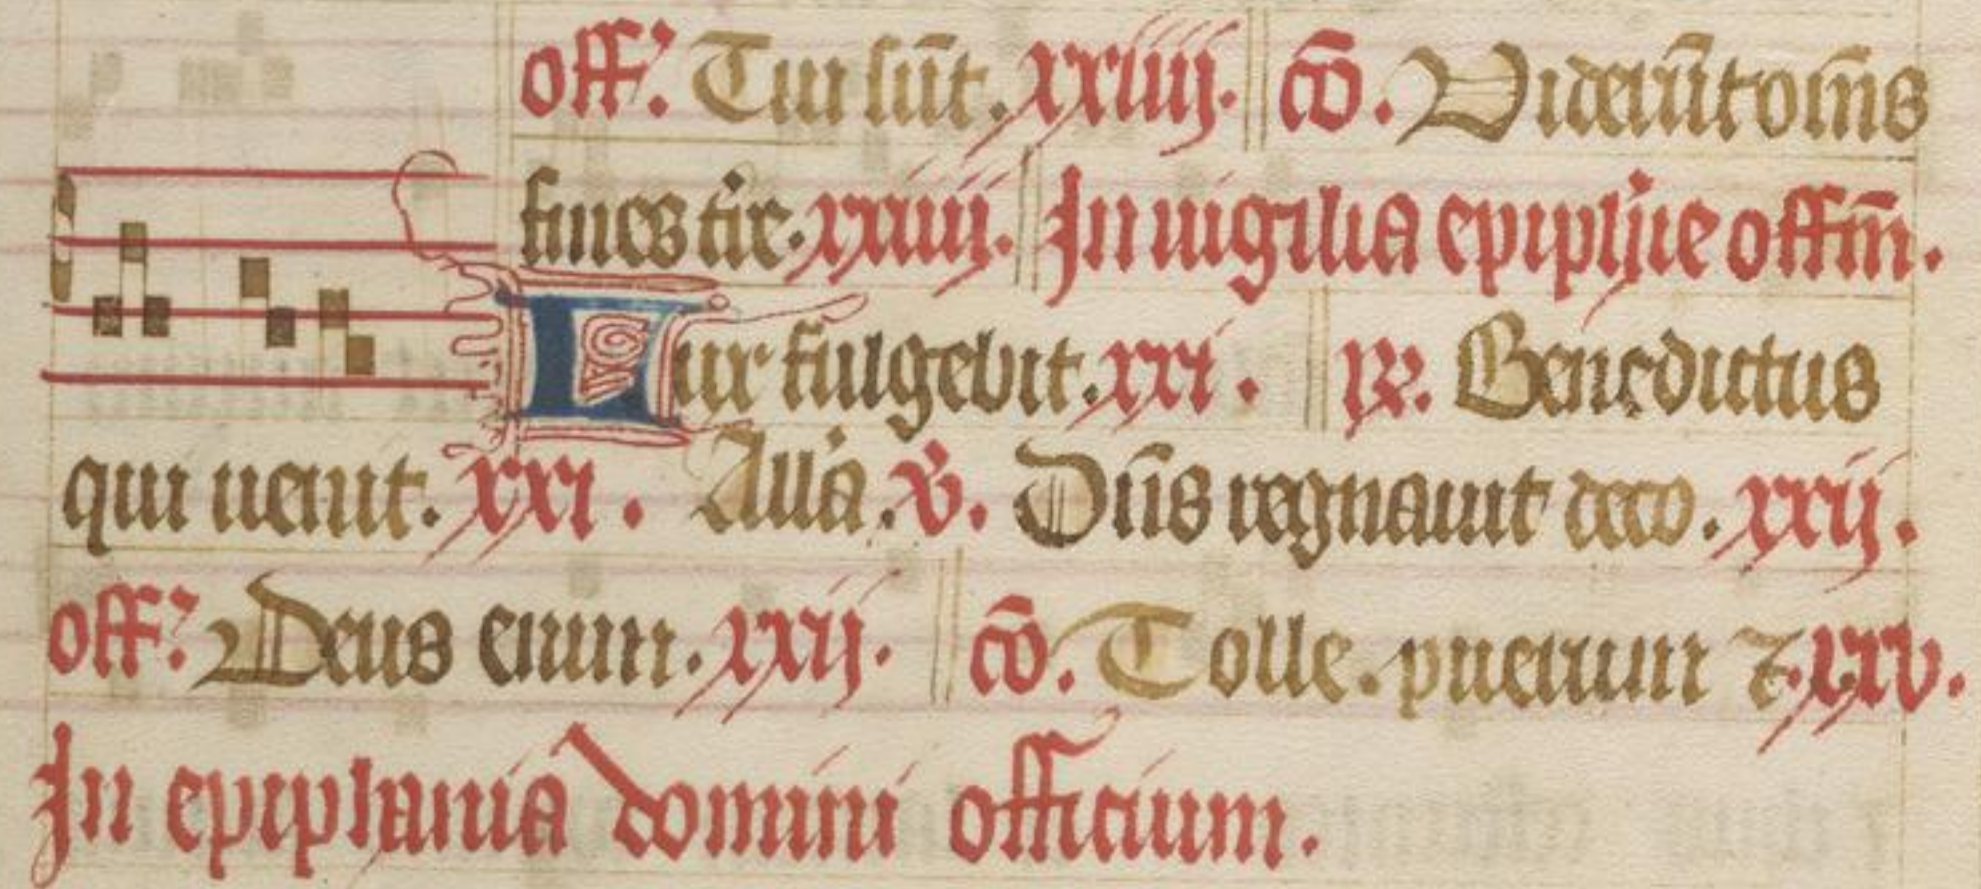 off. Tui sūt. xxiiij. cō. Viderūt om̄s
fines tr̄e. xxiiij. In uigilia epiph̄ie offm̄.
Lux fulgebit. xxi. ℟. Benedictus
qui uenit. xxi. All'a. v̄. Dn̄s regnauit deco. xxij.
off. Deus enim. xxij. cō. Tolle. puerum ⁊. xxv.
In epiphania domini officium.